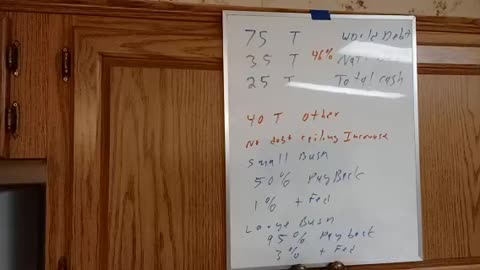 75 T World Debt
35 T 46% Nat
25 T Total cash
40 T Other
No debt ceiling Increase
Small Busn
50% PayBack
1% + Fed
Large Busn
95% Payback
3% + Fed